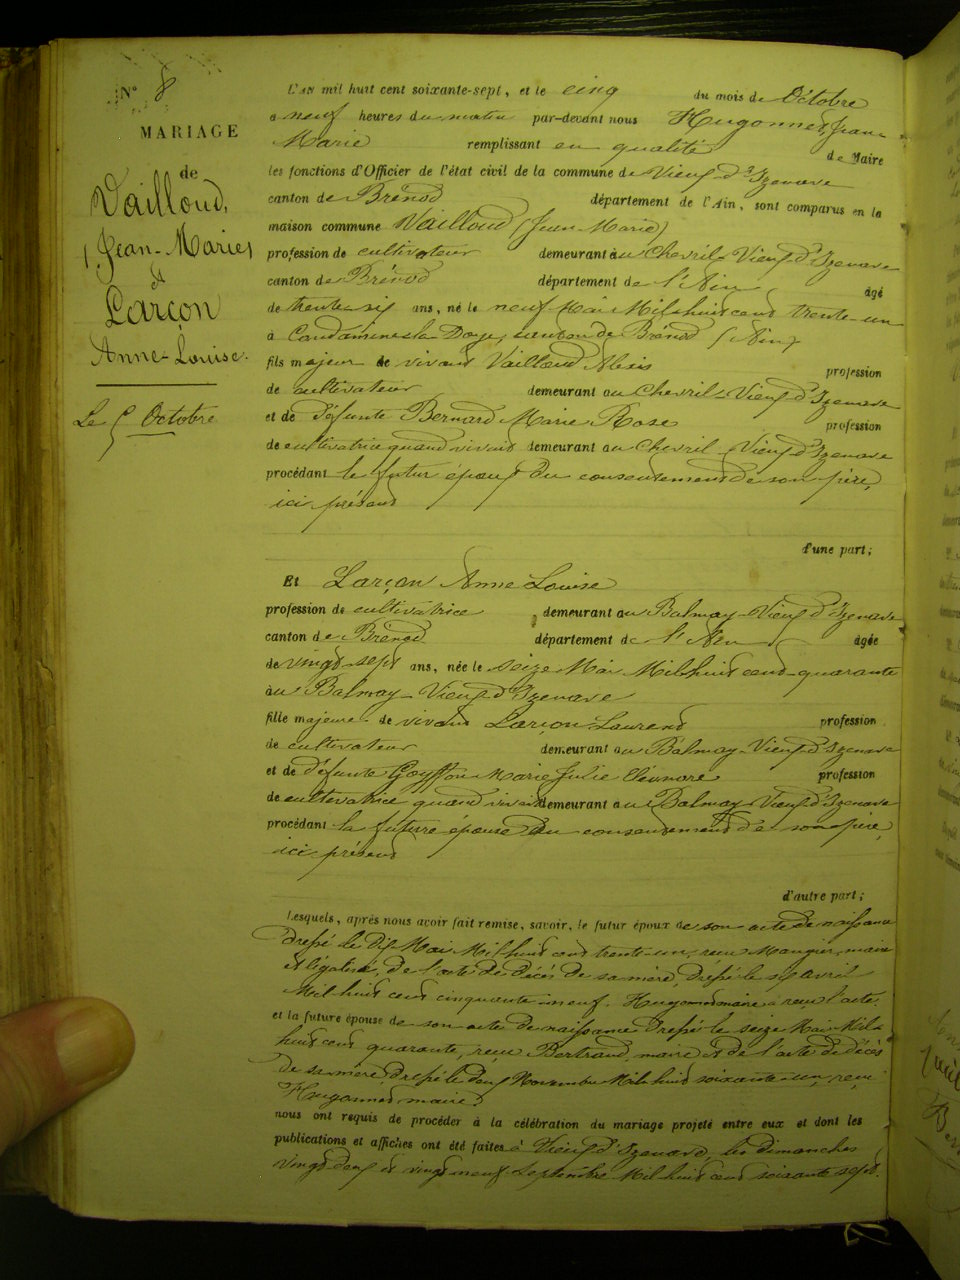 N° 8
MARIAGE
de
Vailloud,
(Jean-Marie)
et
Larçon
Anne-Louise.
Le 5 Octobre
L'an mil huit cent soixante-sept, et le cinq du mois de Octobre
a neuf heures du matin par-devant nous Hugonnet, Jean
Marie remplissant en qualité de Maire
les fonctions d'Officier de l'état civil de la commune de Vieux-d'Izenave
canton de Brénod département de l'Ain, sont comparus en la
maison commune Vailloud (Jean Marie)
profession de cultivateur demeurant au Chevril-Vieux d'Izenave
canton de Brénod département de l'Ain âgé
de trente-six ans, né le neuf Mai Mil-huit cent trente-un
à Condamine-la Doye, canton de Brénod (Ain)
fils majeur de vivant Vailloud Alexis profession
de cultivateur demeurant au Chevril-Vieux d'Izenave
et de défunte Bernard Marie Rose profession
de cultivatrice quand vivait demeurant au Chevril-Vieux d'Izenave
procédant le futur époux du consentement de son père,
ici présent
d'une part;
Et Larçon Anne Louise
profession de cultivatrice demeurant au Balmay-Vieux d'Izenave
canton de Brénod département de l'Ain âgée
de vingt-sept ans, née le seize Mai Mil huit cent quarante
au Balmay-Vieux d'Izenave
fille majeure de vivant Larçon Laurent profession
de cultivateur demeurant au Balmay-Vieux d'Izenave
et de défunte Goyffon Marie Julie Eléonore profession
de cultivatrice quand vivait demeurant au Balmay-Vieux d'Izenave
procédant la future épouse du consentement de son père,
ici présent
d'autre part;
Lesquels, après nous avoir fait remise, savoir, le futur époux de son acte de naissance
dressé le dix Mai Mil huit cent trente-un, reçu Maugier, maire
et légalisé, de l'acte de décès de sa mère, dressé le sept avril
Mil huit cent cinquante-neuf. Hugonnet maire a reçu l'acte.
et la future épouse de son acte de naissance dressé le seize Mai Mil
huit cent quarante, reçu Bertrand, maire et de l'acte de décès
de sa mère, dressé le deux Novembre Mil huit soixante-un, reçu
Hugonnet maire.
nous ont requis de procéder à la célébration du mariage projeté entre eux et dont les
publications et affiches ont été faites à Vieux d'Izenave, les dimanches
vingt-deux et vingt-neuf Septembre Mil huit cent soixante sept.